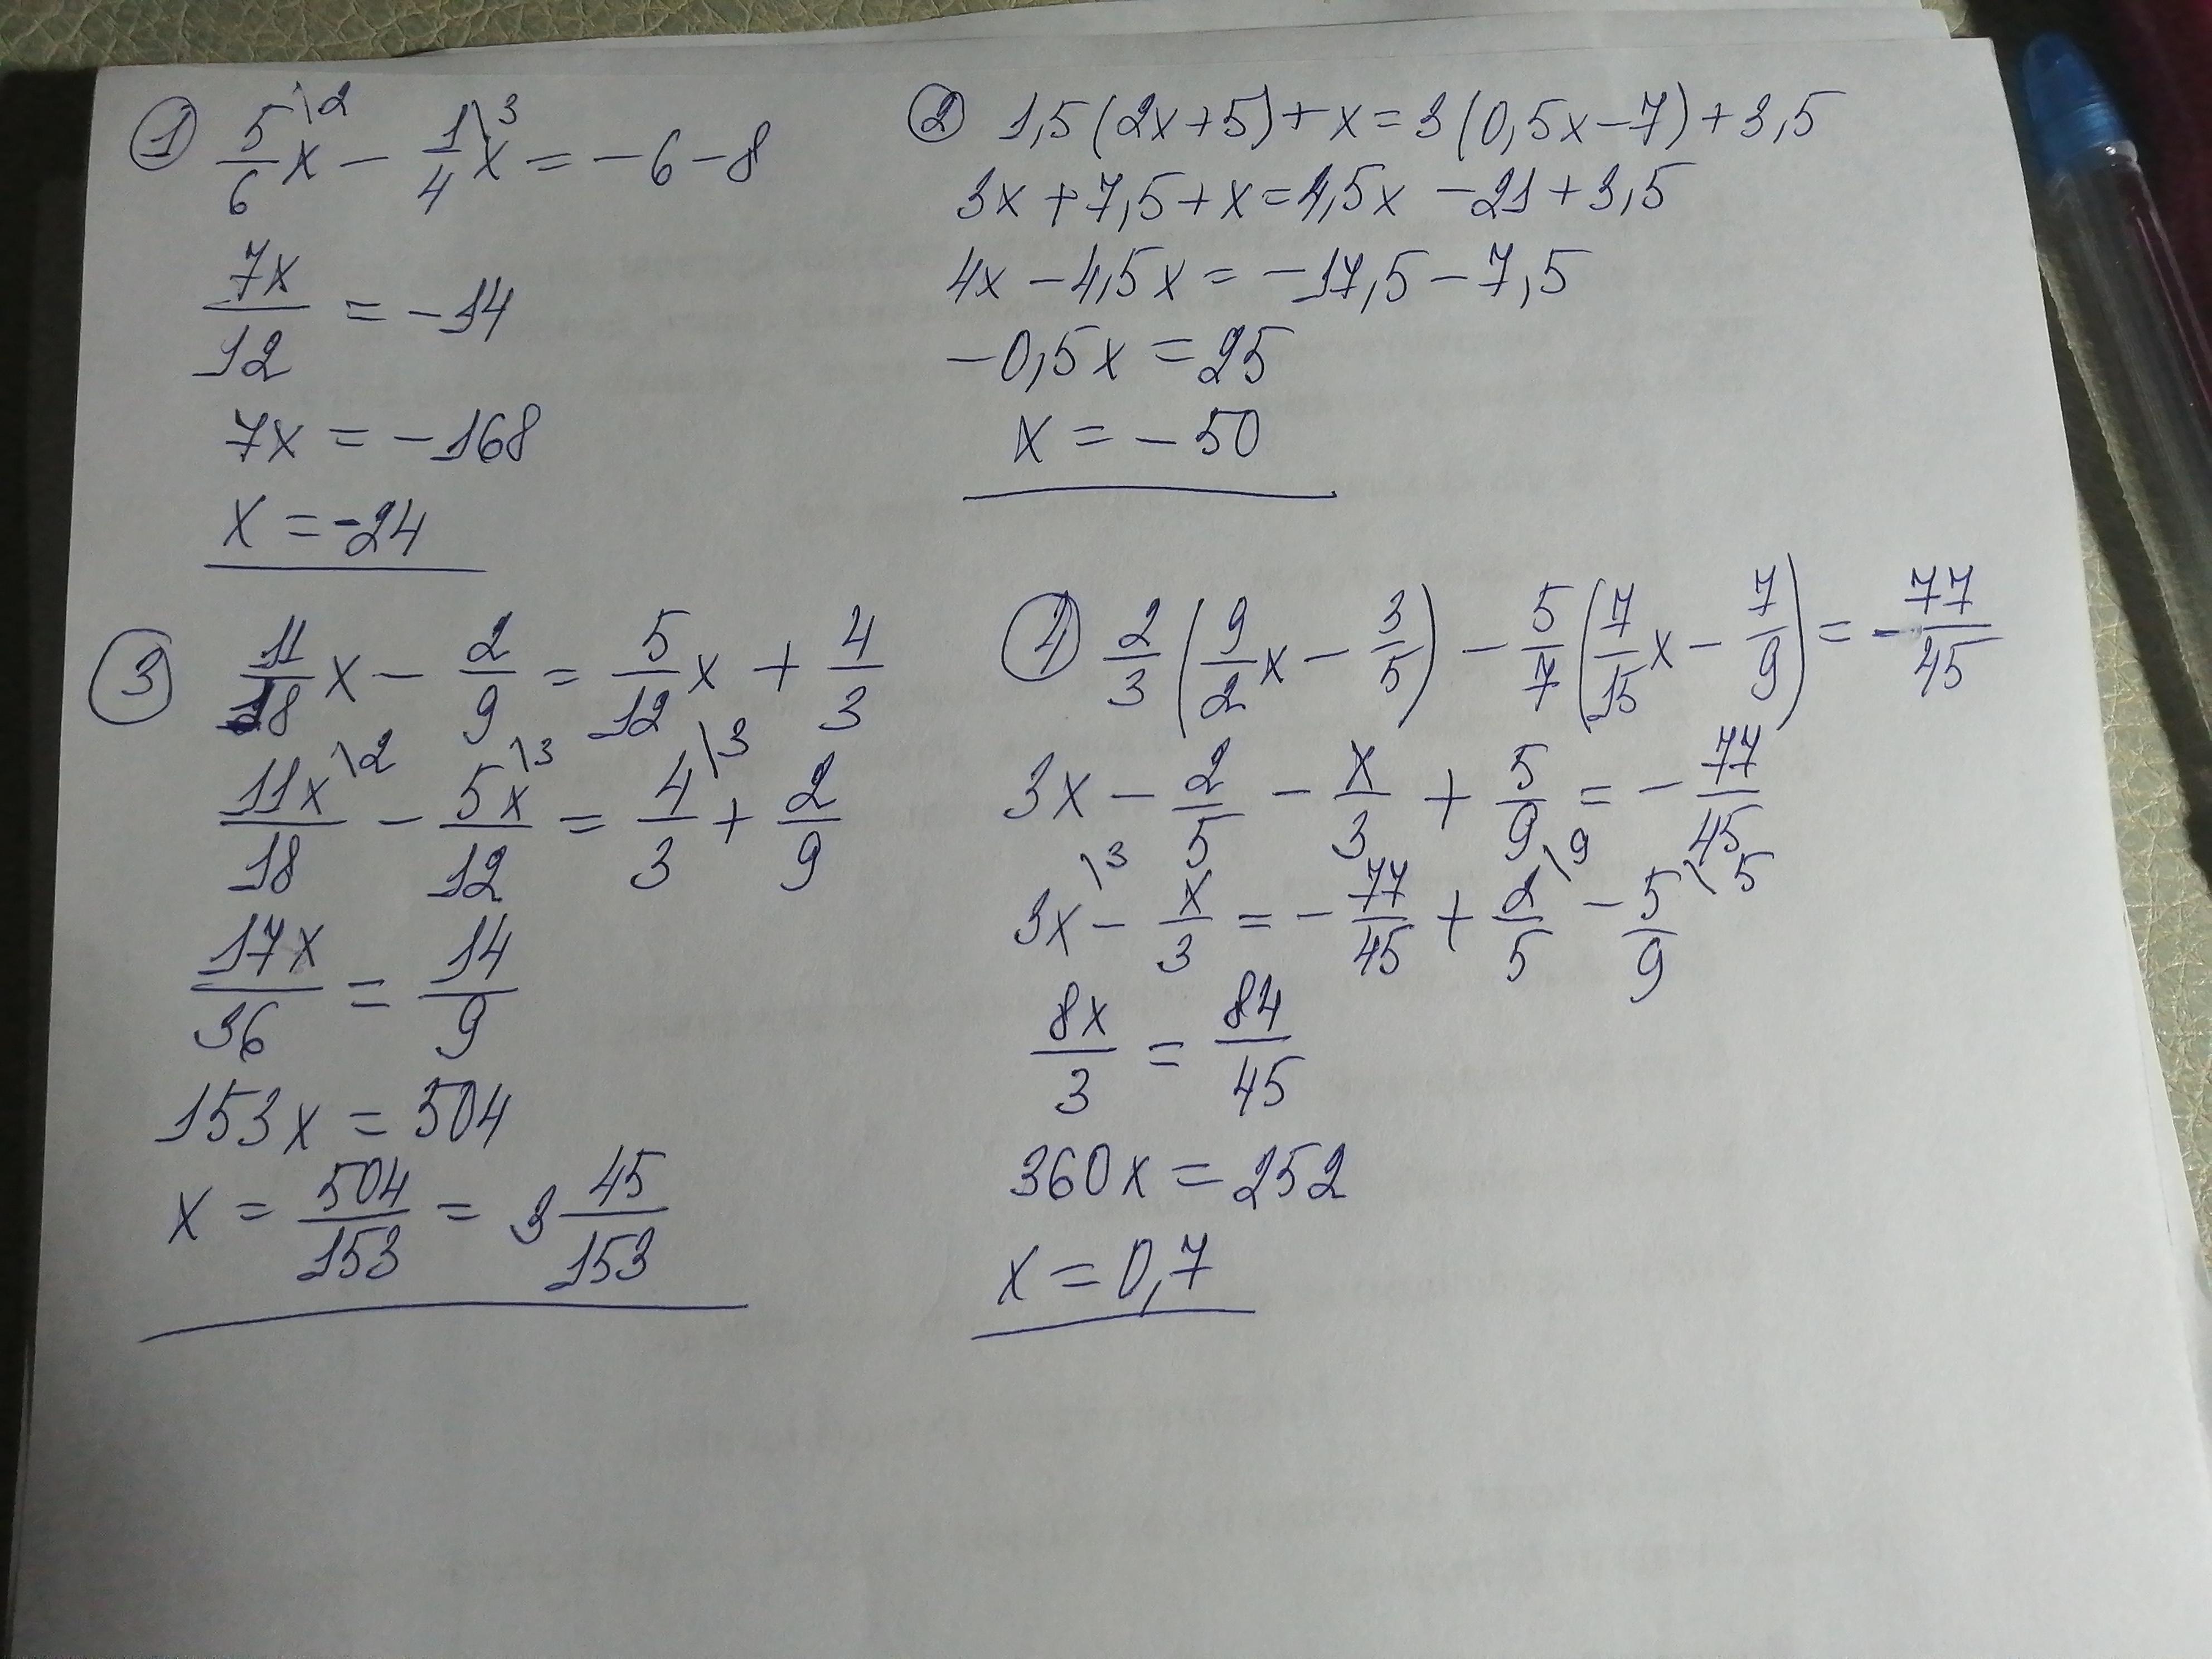 ① 5\2/6 x - 1\3/4 x = -6-8
7x/12 = -14
7x = -168
x = -24
② 1,5(2x+5)+x=3(0,5x-7)+3,5
3x+7,5+x=4,5x-21+3,5
4x-4,5x=-17,5-7,5
-0,5x=25
x=-50
③ 11/18 x - 2/9 = 5/12 x + 4/3
11x\2/18 - 5x\3/12 = 4\3/3 + 2/9
17x/36 = 14/9
153x = 504
x = 504/153 = 3 45/153
④ 2/3 (9/2 x - 3/5) - 5/7 (7/15 x - 7/9) = - 77/45
3x - 2/5 - x/3 + 5/9 = - 77/45
3x\3 - x/3 = - 77/45 + 2\9/5 - 5\5/9
8x/3 = 84/45
360x = 252
x = 0,7